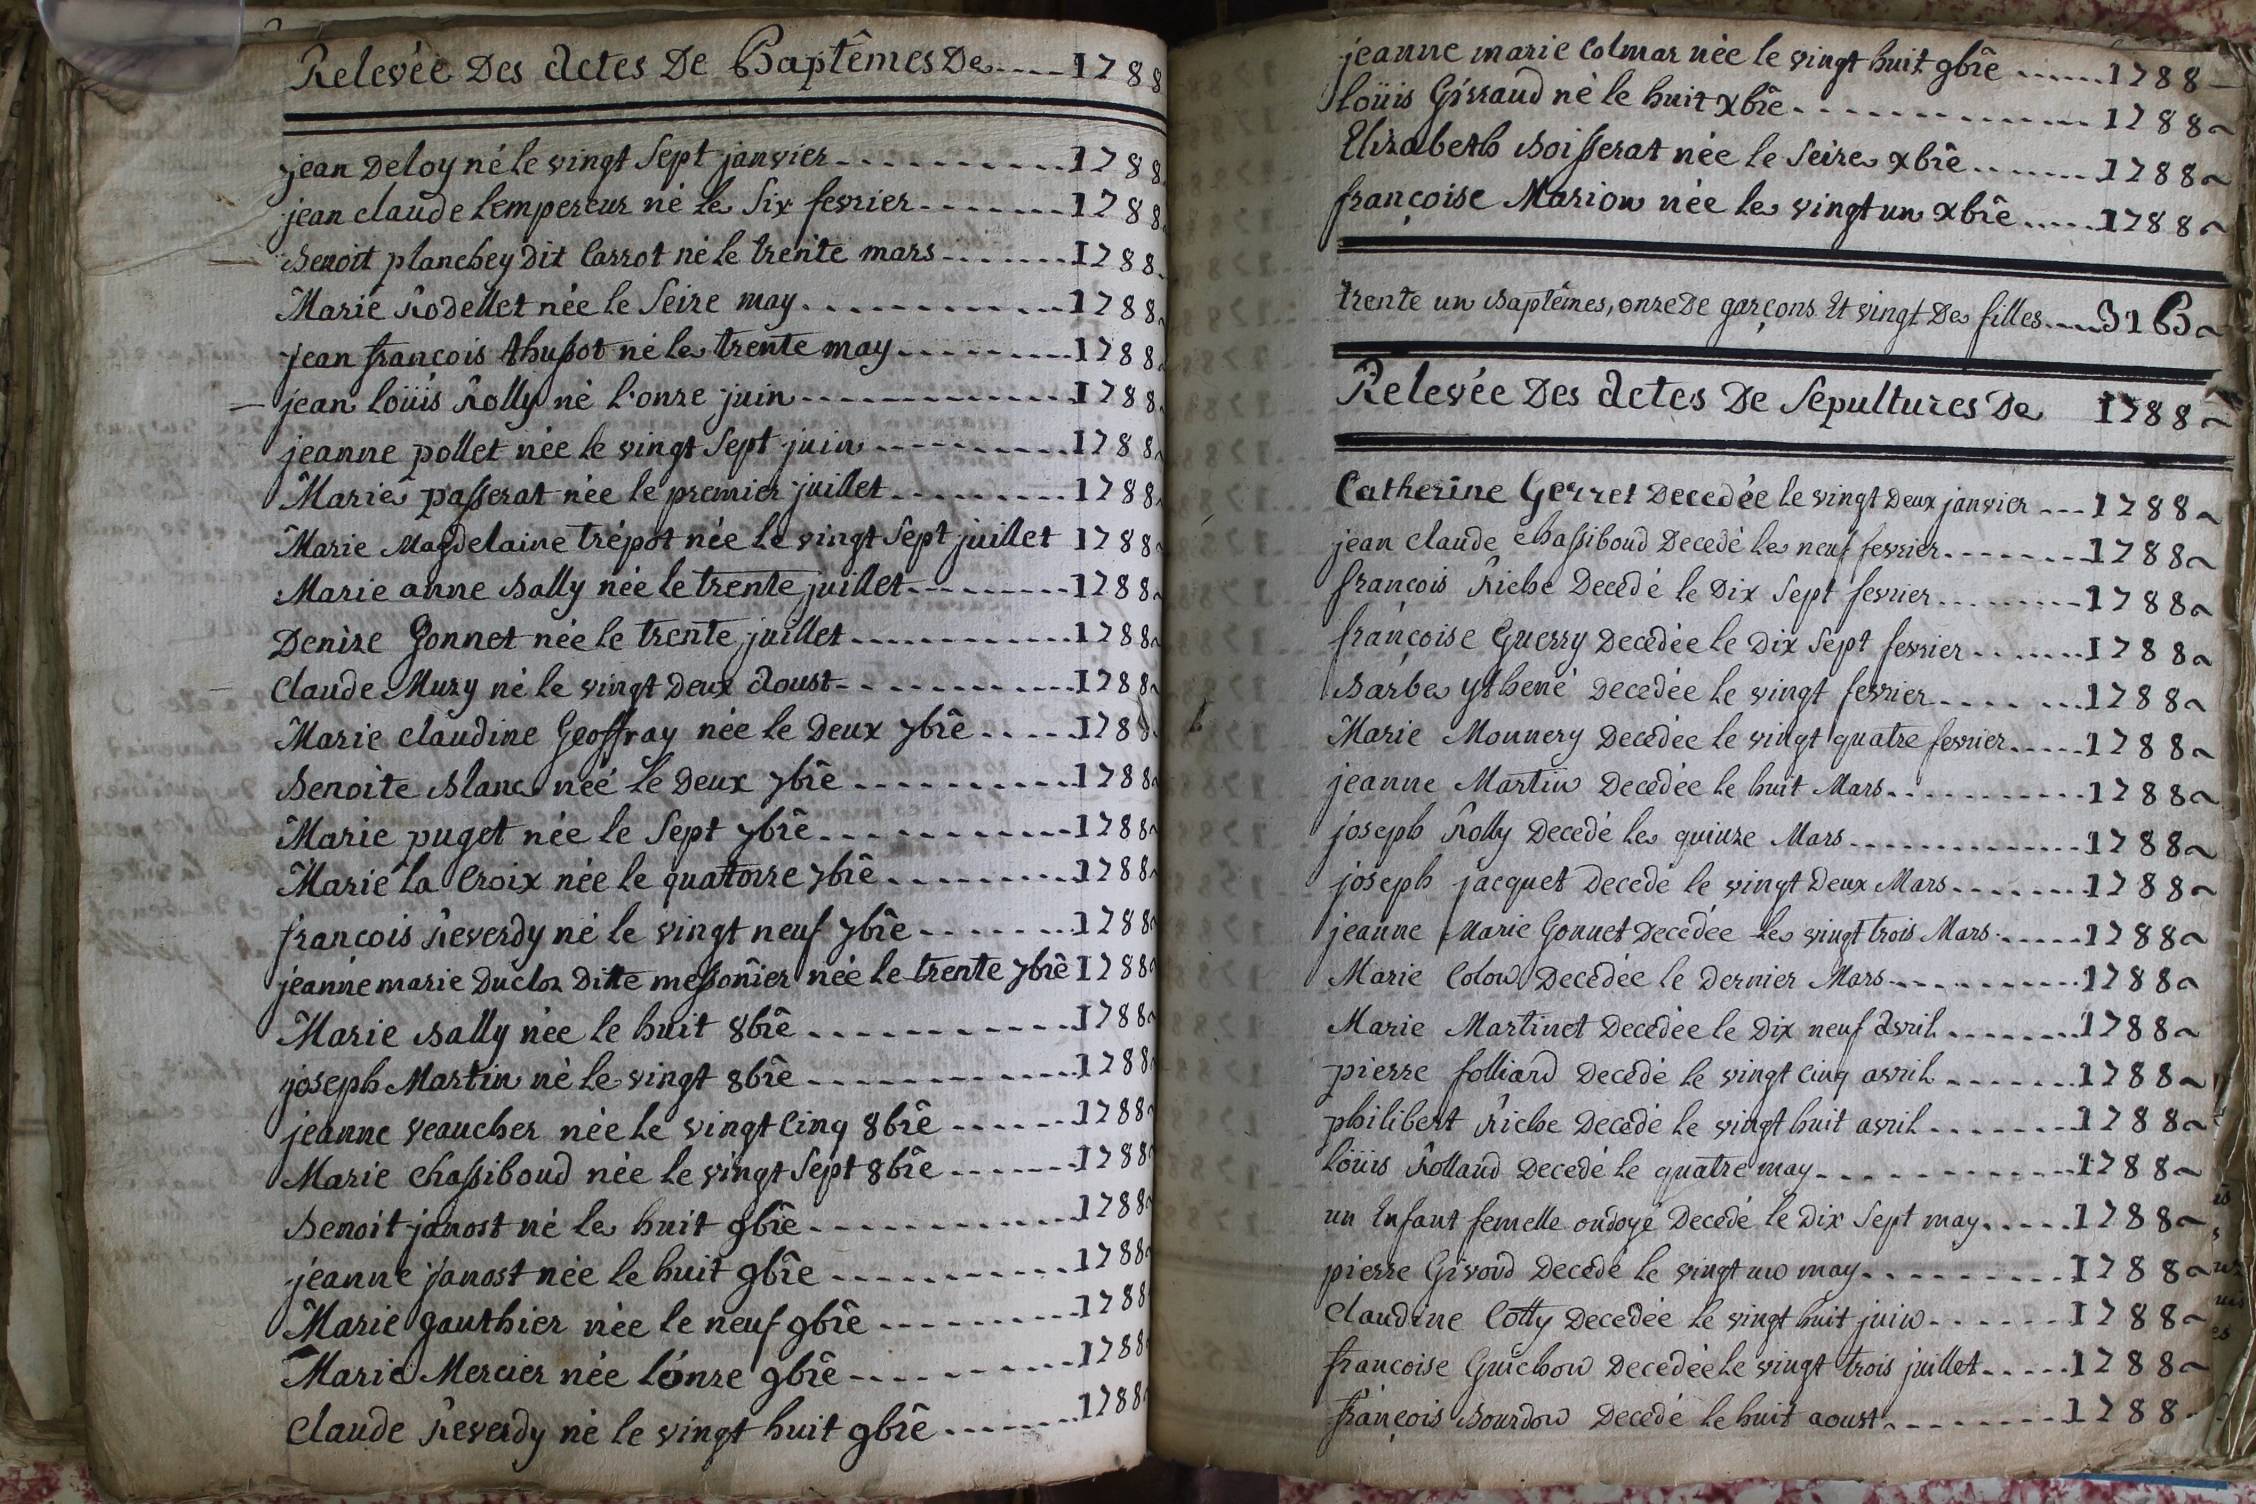 Relevée Des Actes De Baptêmes De.....1788
jean Deloy né le vingt sept janvier..........1788
jean claude Lempereur né le six fevrier.......1788
Benoit planchey dit Carrot né le trente mars.......1788
Marie Rodellet née le seize may..........1788
jean françois thussot né le trente may.........1788
jean loüis Rolly né l'onze juin............1788
jeanne pollet née le vingt sept juin.........1788
Marie passerat née le premier juillet.........1788
Marie Magdelaine trépot née le vingt sept juillet 1788
Marie anne Bally née le trente juillet.........1788
Denize Gonnet née le trente juillet...........1788
Claude Muzy né le vingt Deux Aoust..........1788
Marie claudine Geoffray née le Deux 7bre.....1788
Benoite Blanc née le Deux 7bre..........1788
Marie puget née le sept 7bre...........1788
Marie la Croix née le quatorze 7bre.........1788
françois Reverdy né le vingt neuf 7bre.......1788
jeanne marie Ducloz Ditte messonier née le trente 7bre 1788
Marie Bally née le huit 8bre...........1788
joseph Martin né le vingt 8bre...........1788
jeanne veaucher née le vingt cinq 8bre......1788
Marie chassiboud née le vingt sept 8bre.......1788
Benoit janost né le huit 9bre...........1788
jeanne janost née le huit 9bre..........1788
Marie gauthier née le neuf 9bre.........1788
Marie Mercier née l'onze 9bre.........1788
Claude Reverdy né le vingt huit 9bre.......1788
jeanne marie Colmar née le vingt huit 9bre......1788
loüis Girraud né le huit Xbre............1788
Elizabeth Boisserat née le seize Xbre.......1788
françoise Marion née le vingt un Xbre.....1788
trente un Baptêmes, onze De garçons Et vingt De filles....31 B
Relevée Des Actes De Sepultures De 1788
Catherine Gerret Decedée le vingt Deux janvier...1788
jean claude chassiboud Decedé le neuf fevrier.......1788
françois Riche Decedé le Dix sept fevrier.........1788
françoise Guerry Decedée le Dix sept fevrier.......1788
Barbe ythené Decedée le vingt fevrier.......1788
Marie Monnery Decedée le vingt quatre fevrier.....1788
jeanne Martin Decedée le huit Mars...........1788
joseph Rolly Decedé le quinze Mars.............1788
joseph jacquet Decedé le vingt Deux Mars.......1788
jeanne Marie Gonnet Decedée le vingt trois Mars.....1788
Marie Colon Decedée le Dernier Mars..........1788
Marie Martinet Decedée le Dix neuf Avril.......1788
pierre folliard Decedé le vingt cinq avril.......1788
philibert Riche Decedé le vingt huit avril.......1788
loüis Rolland Decedé le quatre may............1788
un Enfant femelle ondoyé Decedé le Dix sept may.....1788
pierre Giroud Decedé le vingt un may.........1788
Claudine Cotty Decedée le vingt huit juin.......1788
françoise Guichon Decedée le vingt trois juillet.....1788
françois Bourdon Decedé le huit aoust........1788